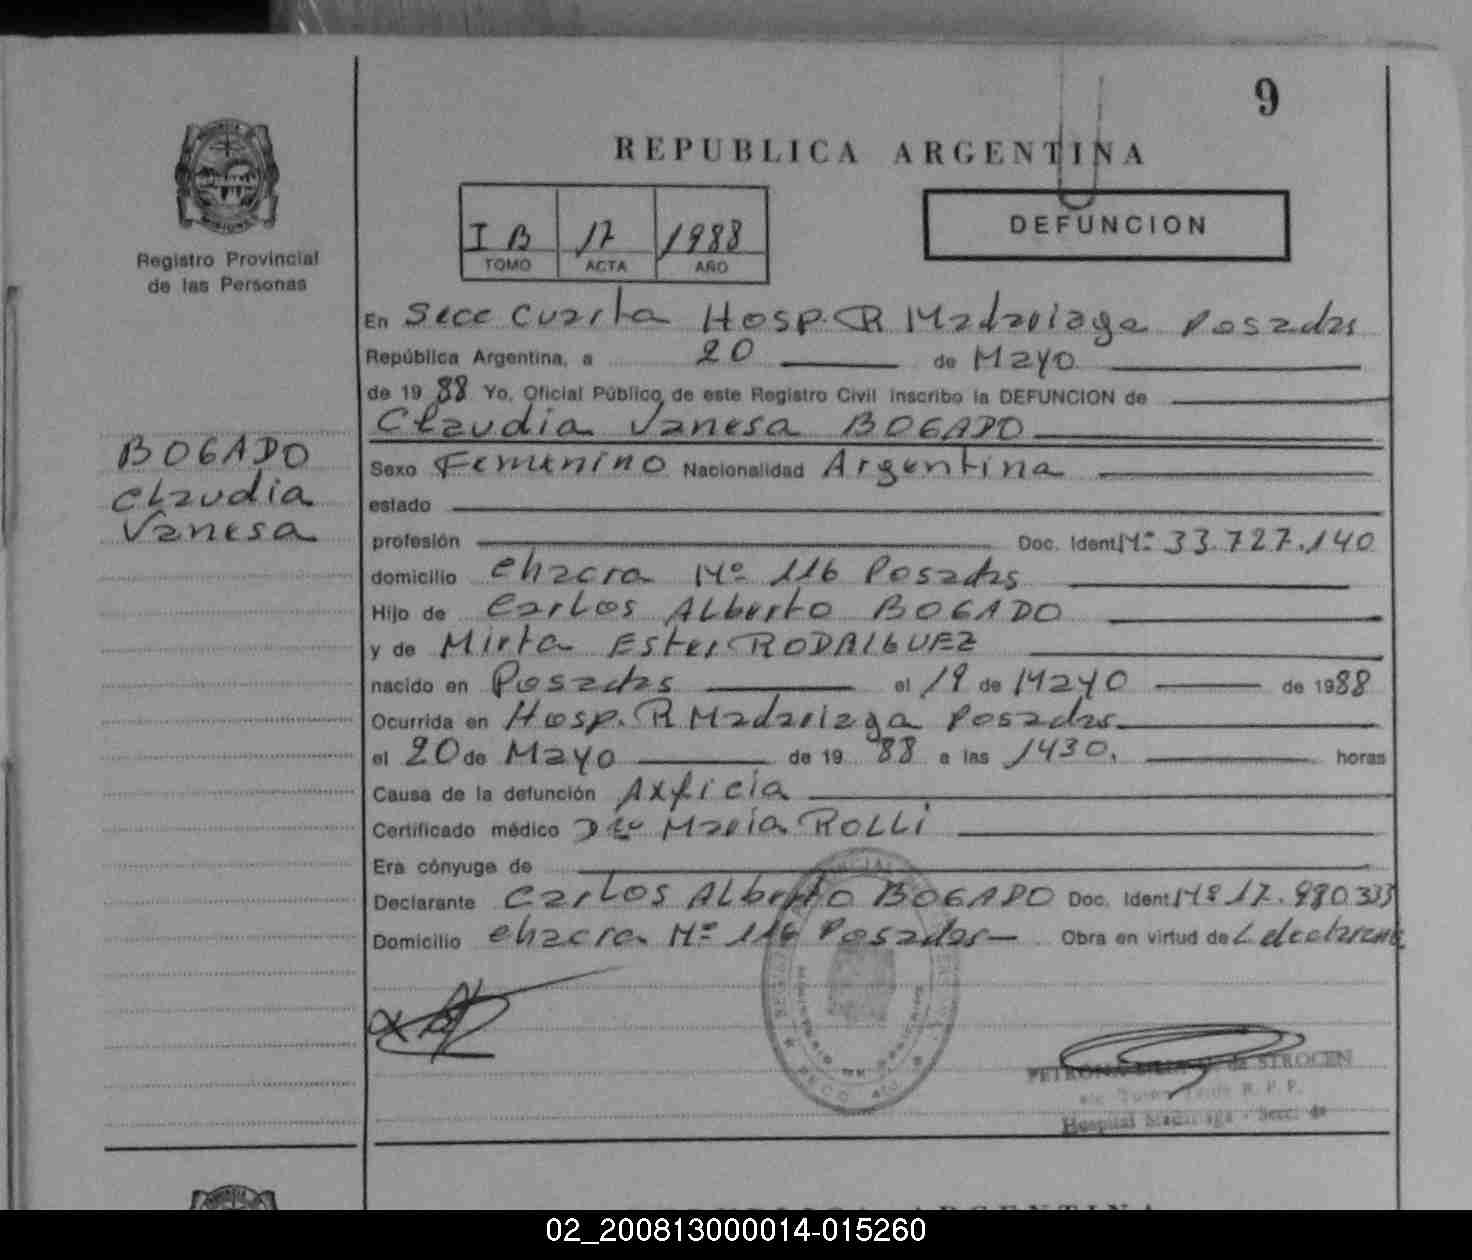 9
REPUBLICA ARGENTINA
I B 17 1988
TOMO ACTA AÑO
DEFUNCION
Registro Provincial
de las Personas
BOGADO
Claudia
Vanesa
En Secc Cuarta Hosp. R Madariaga Posadas
República Argentina, a 20 de Mayo
de 19 88 Yo, Oficial Público de este Registro Civil inscribo la DEFUNCION de
Claudia Vanesa BOGADO
Sexo Femenino Nacionalidad Argentina
estado
profesión Doc. Ident. Nº 33.727.140
domicilio Chacra Nº 116 Posadas
Hijo de Carlos Alberto BOGADO
y de Mirta Ester RODRIGUEZ
nacido en Posadas el 19 de Mayo de 1988
Ocurrida en Hosp. R Madariaga Posadas
el 20 de Mayo de 19 88 a las 1430. horas
Causa de la defunción Axficia
Certificado médico Dra Maria ROLLI
Era cónyuge de
Declarante Carlos Alberto BOGADO Doc. Ident. Nº 17.980.333
Domicilio Chacra Nº 116 Posadas Obra en virtud de
STROCEN
R. P. P.
Hospital Madariaga - Secc. 4a
02_200813000014-015260